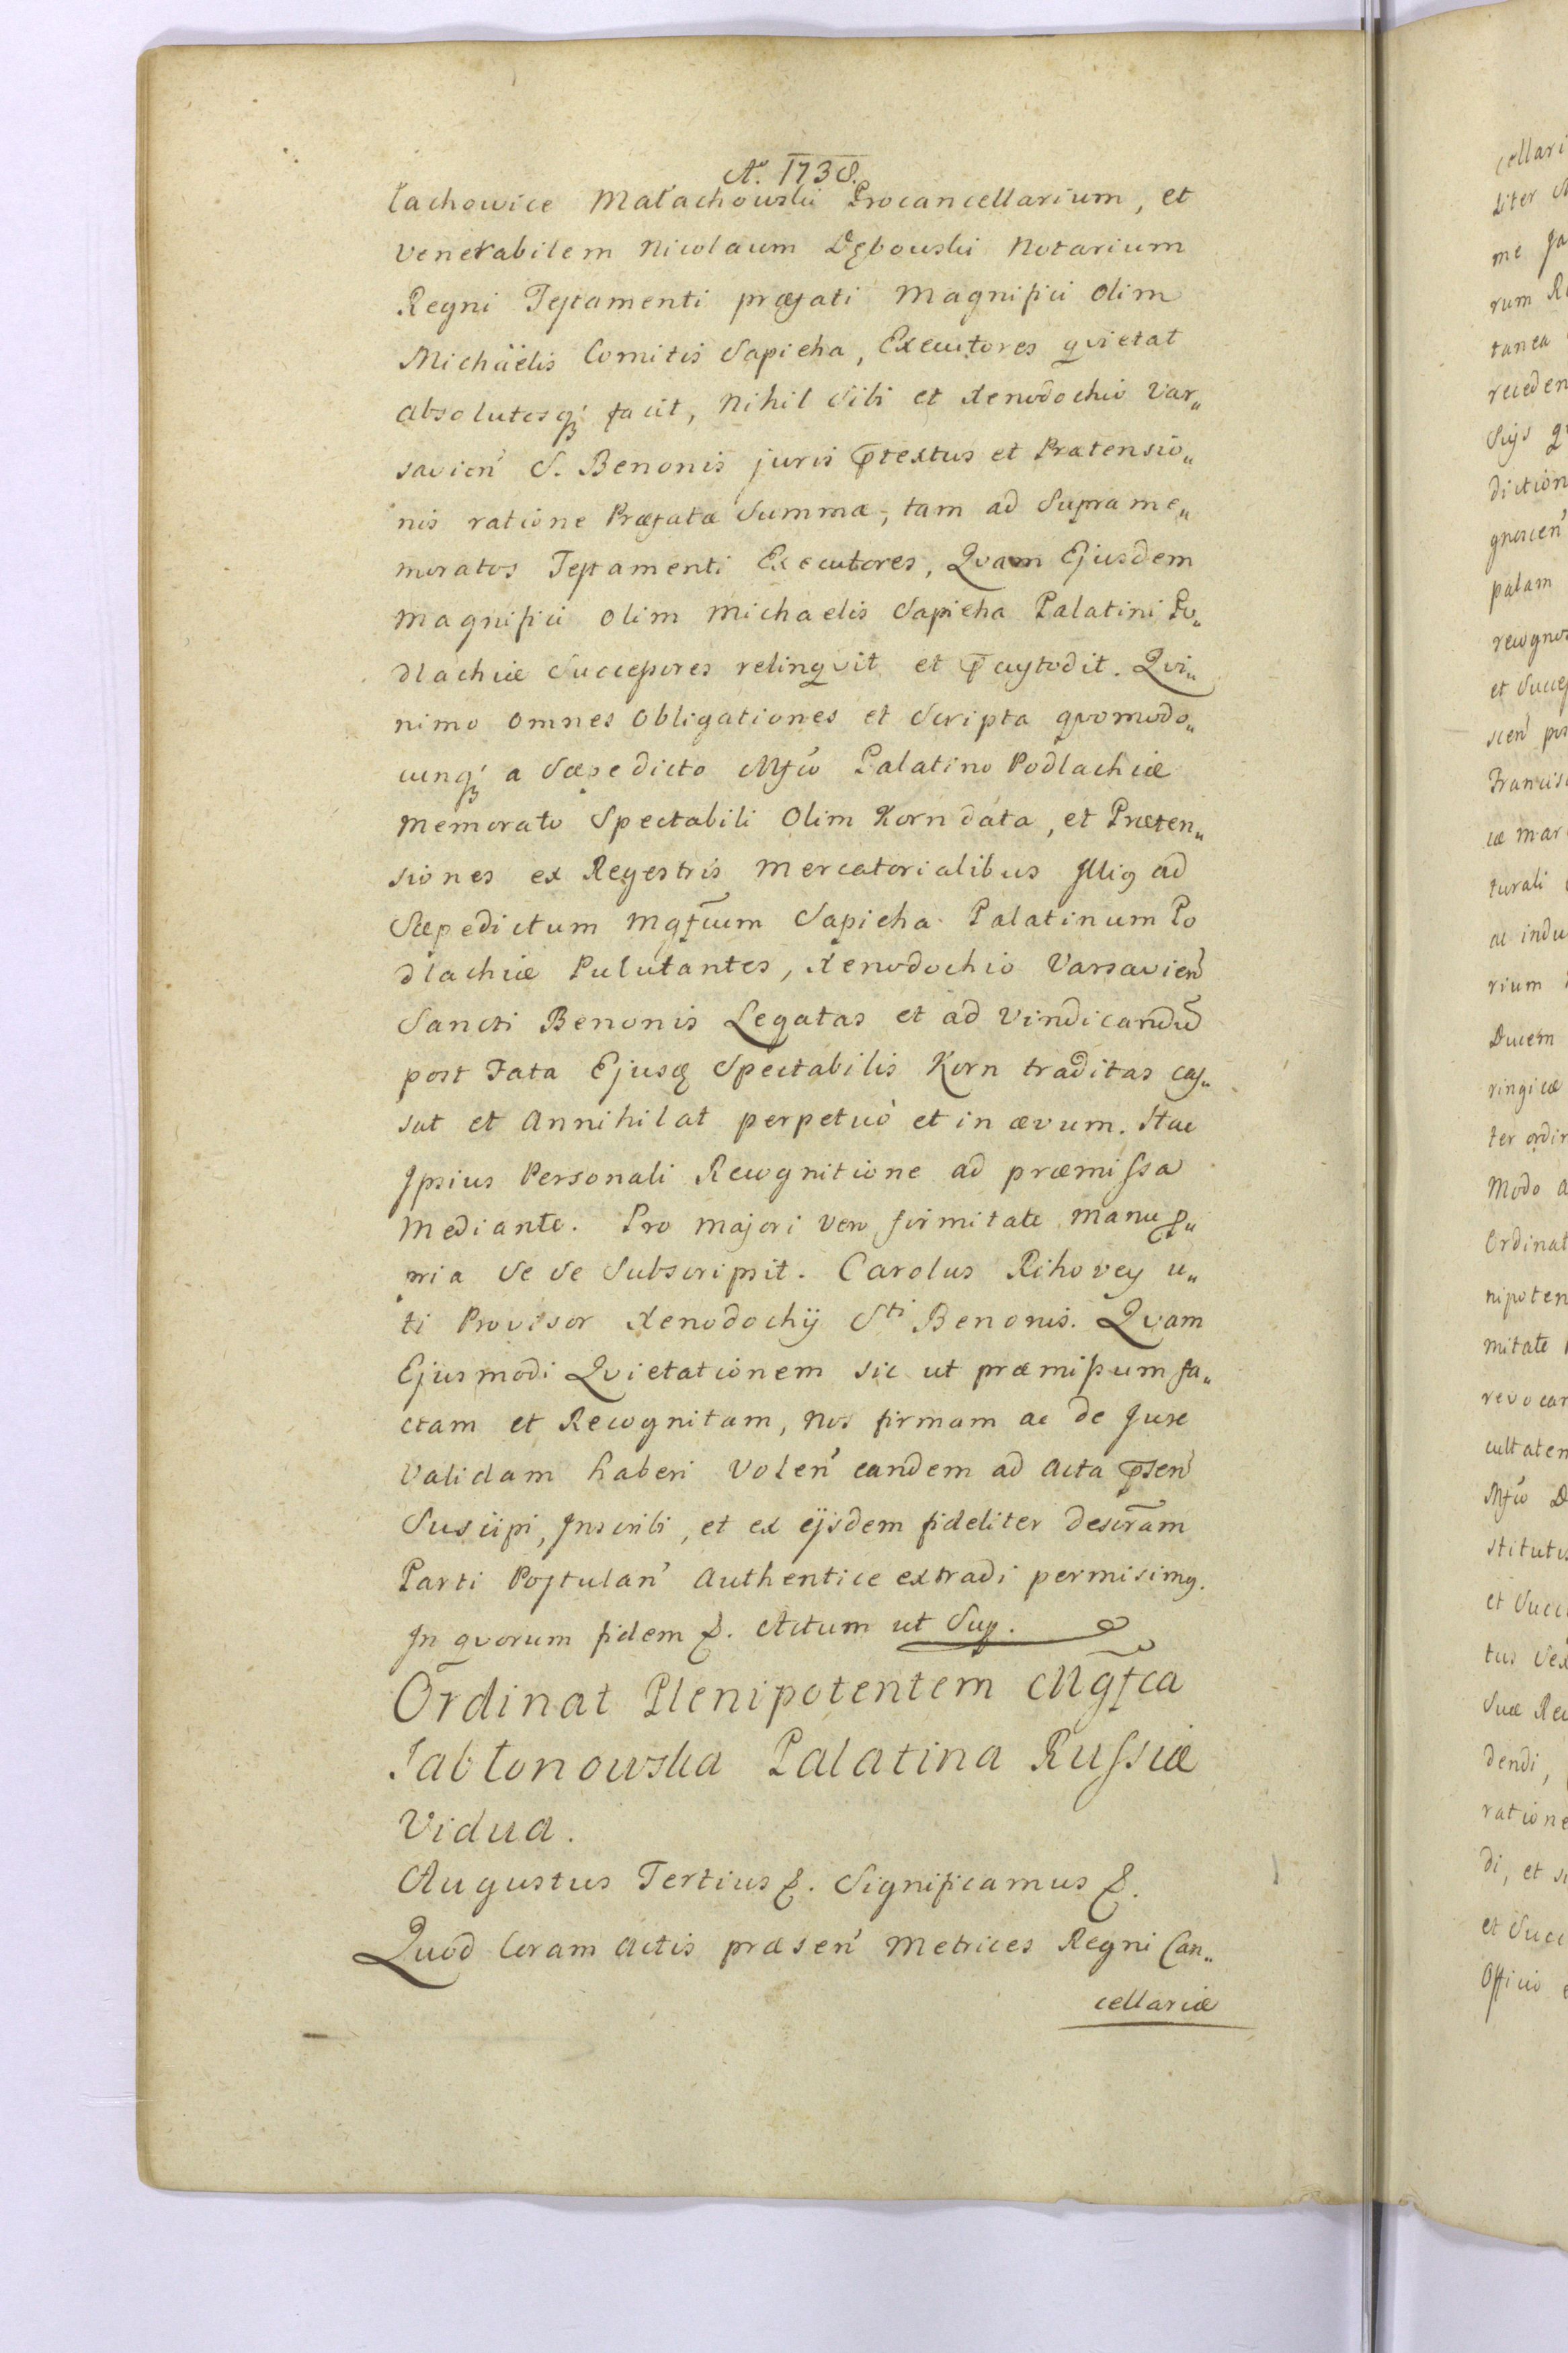 A° 1738.
łachowice Małachowski Procancellarium, et
Venerabilem Nicolaum Dębowski Notarium
Regni Testamenti præfati Magnifici olim
Michäelis Comitis Sapieha, Executores qvietat
absolutosq; facit, Nihil Sibi et Xenodochio Var„
savien̄ S. Benonis juris p̄textus et Prætensio„
nis ratione Præfatæ Summæ, tam ad Suprame„
moratos Testamenti Executores, Qvam Ejusdem
Magnifici olim Michaelis Sapieha Palatini Po„
dlachiæ Successores relinqvit et p̄custodit. Qvi„
nimo omnes obligationes et Scripta qvomodo„
cunq; a Sæpedicto Mfco Palatino Podlachiæ
Memorato Spectabili Olim Korn data, et Præten„
siones ex Regestris Mercatorialibus Illig ad
Sæpedictum Mgfcum Sapieha Palatinum Po
dlachiæ Pululantes, Xenodochio Varsavien̄
Sancti Benonis Legatas et ad Vindicandū
post Fata Ejusq Spectabilis Korn traditas cas„
sat et Annihilat perpetuo et in ævum. Hac
Ipsius Personali Recognitione ad præmissa
Mediante. Pro majori vero firmitate Manu P„
pria Se Se Subscripsit. Carolus Rihovey u„
ti Provisor Xenodochij Sti Benonis. Qvam
Ejusmodi Qvietationem sic ut præmissum fa„
ctam et Recognitam, Nos firmam ac de Jure
Validam haberi Volen̄ eandem ad Acta p̄sen̄
Suscipi, Inscribi, et ex ejsdem fideliter descr̄am
Parti Postulan̄ Authentice extradi permisimg.
In qvorum fidem &. Actum ut Sup.
Ordinat Plenipotentem Mgfca
Jabłonowska Palatina Russiæ
Vidua.
Augustus Tertius &. Significamus &.
Quod Coram Actis præsen̄ Metrices Regni Can„
cellariæ
cellari
liter
me
rum
tanea
receden
Sijs
diction
gnoscen̄
palam
recognos
et Succes
scen̄
Francis
mar
turali
ac indu
rium
Ducem
ringicæ
ter ordin
Modo a
Ordinat
nipoten
mitate
revocan
cultatem
Mfco
stitutis
et Succ
tus
Suæ Rec
dendi,
ratione
di, et
et Succ
Officio